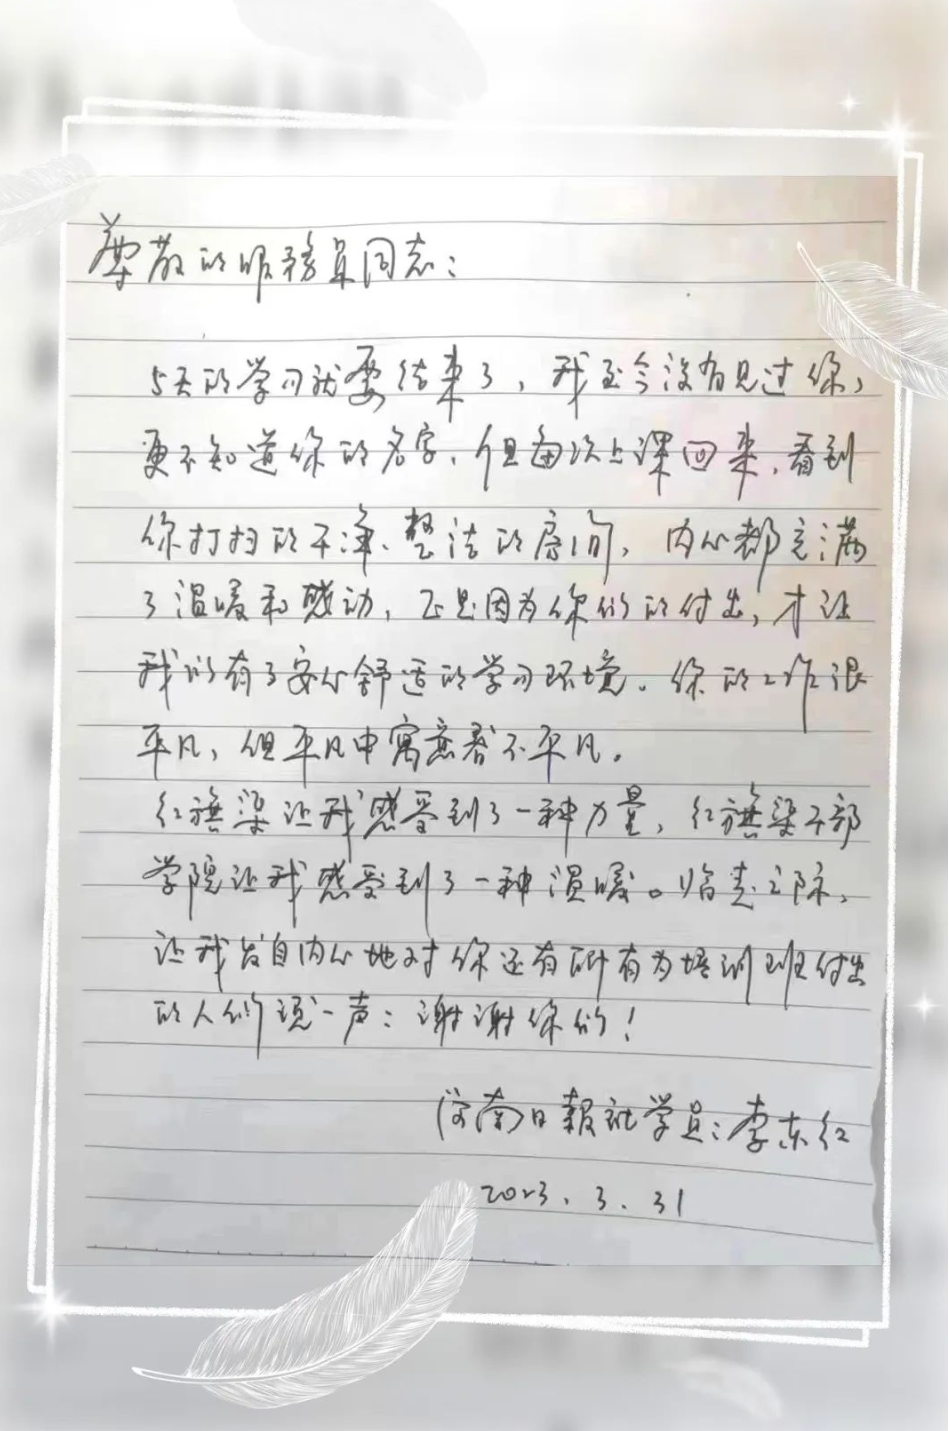 尊敬的服务员同志：
5天的学习就要结束了，我至今没有见过你，
更不知道你的名字，但每次上课回来，看到
你打扫的干净、整洁的房间，内心都充满
了温暖和感动，正是因为你们的付出，才让
我们有了安心舒适的学习环境。你的工作很
平凡，但平凡中寓意着不平凡。
红旗渠让我感受到了一种力量，红旗渠干部
学院让我感受到了一种温暖。临走之际，
让我发自内心地对你还有所有为培训班付出
的人们说一声：谢谢你们！
河南日报社学员：李东红
2023.3.31